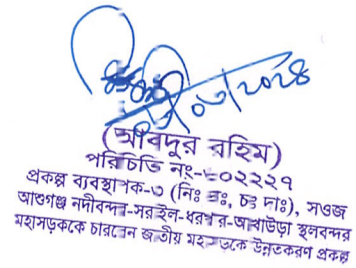 (আবদুর রহিম)
পরিচিতি নং-৬০২২২৭
প্রকল্প ব্যবস্থাপক-৩ (নিঃ প্রঃ, চঃ দাঃ), সওজ
আশুগঞ্জ নদীবন্দর-সরাইল-ধরখার-আখাউড়া স্থলবন্দর
মহাসড়ককে চারলেন জাতীয় মহাসড়কে উন্নতকরণ প্রকল্প